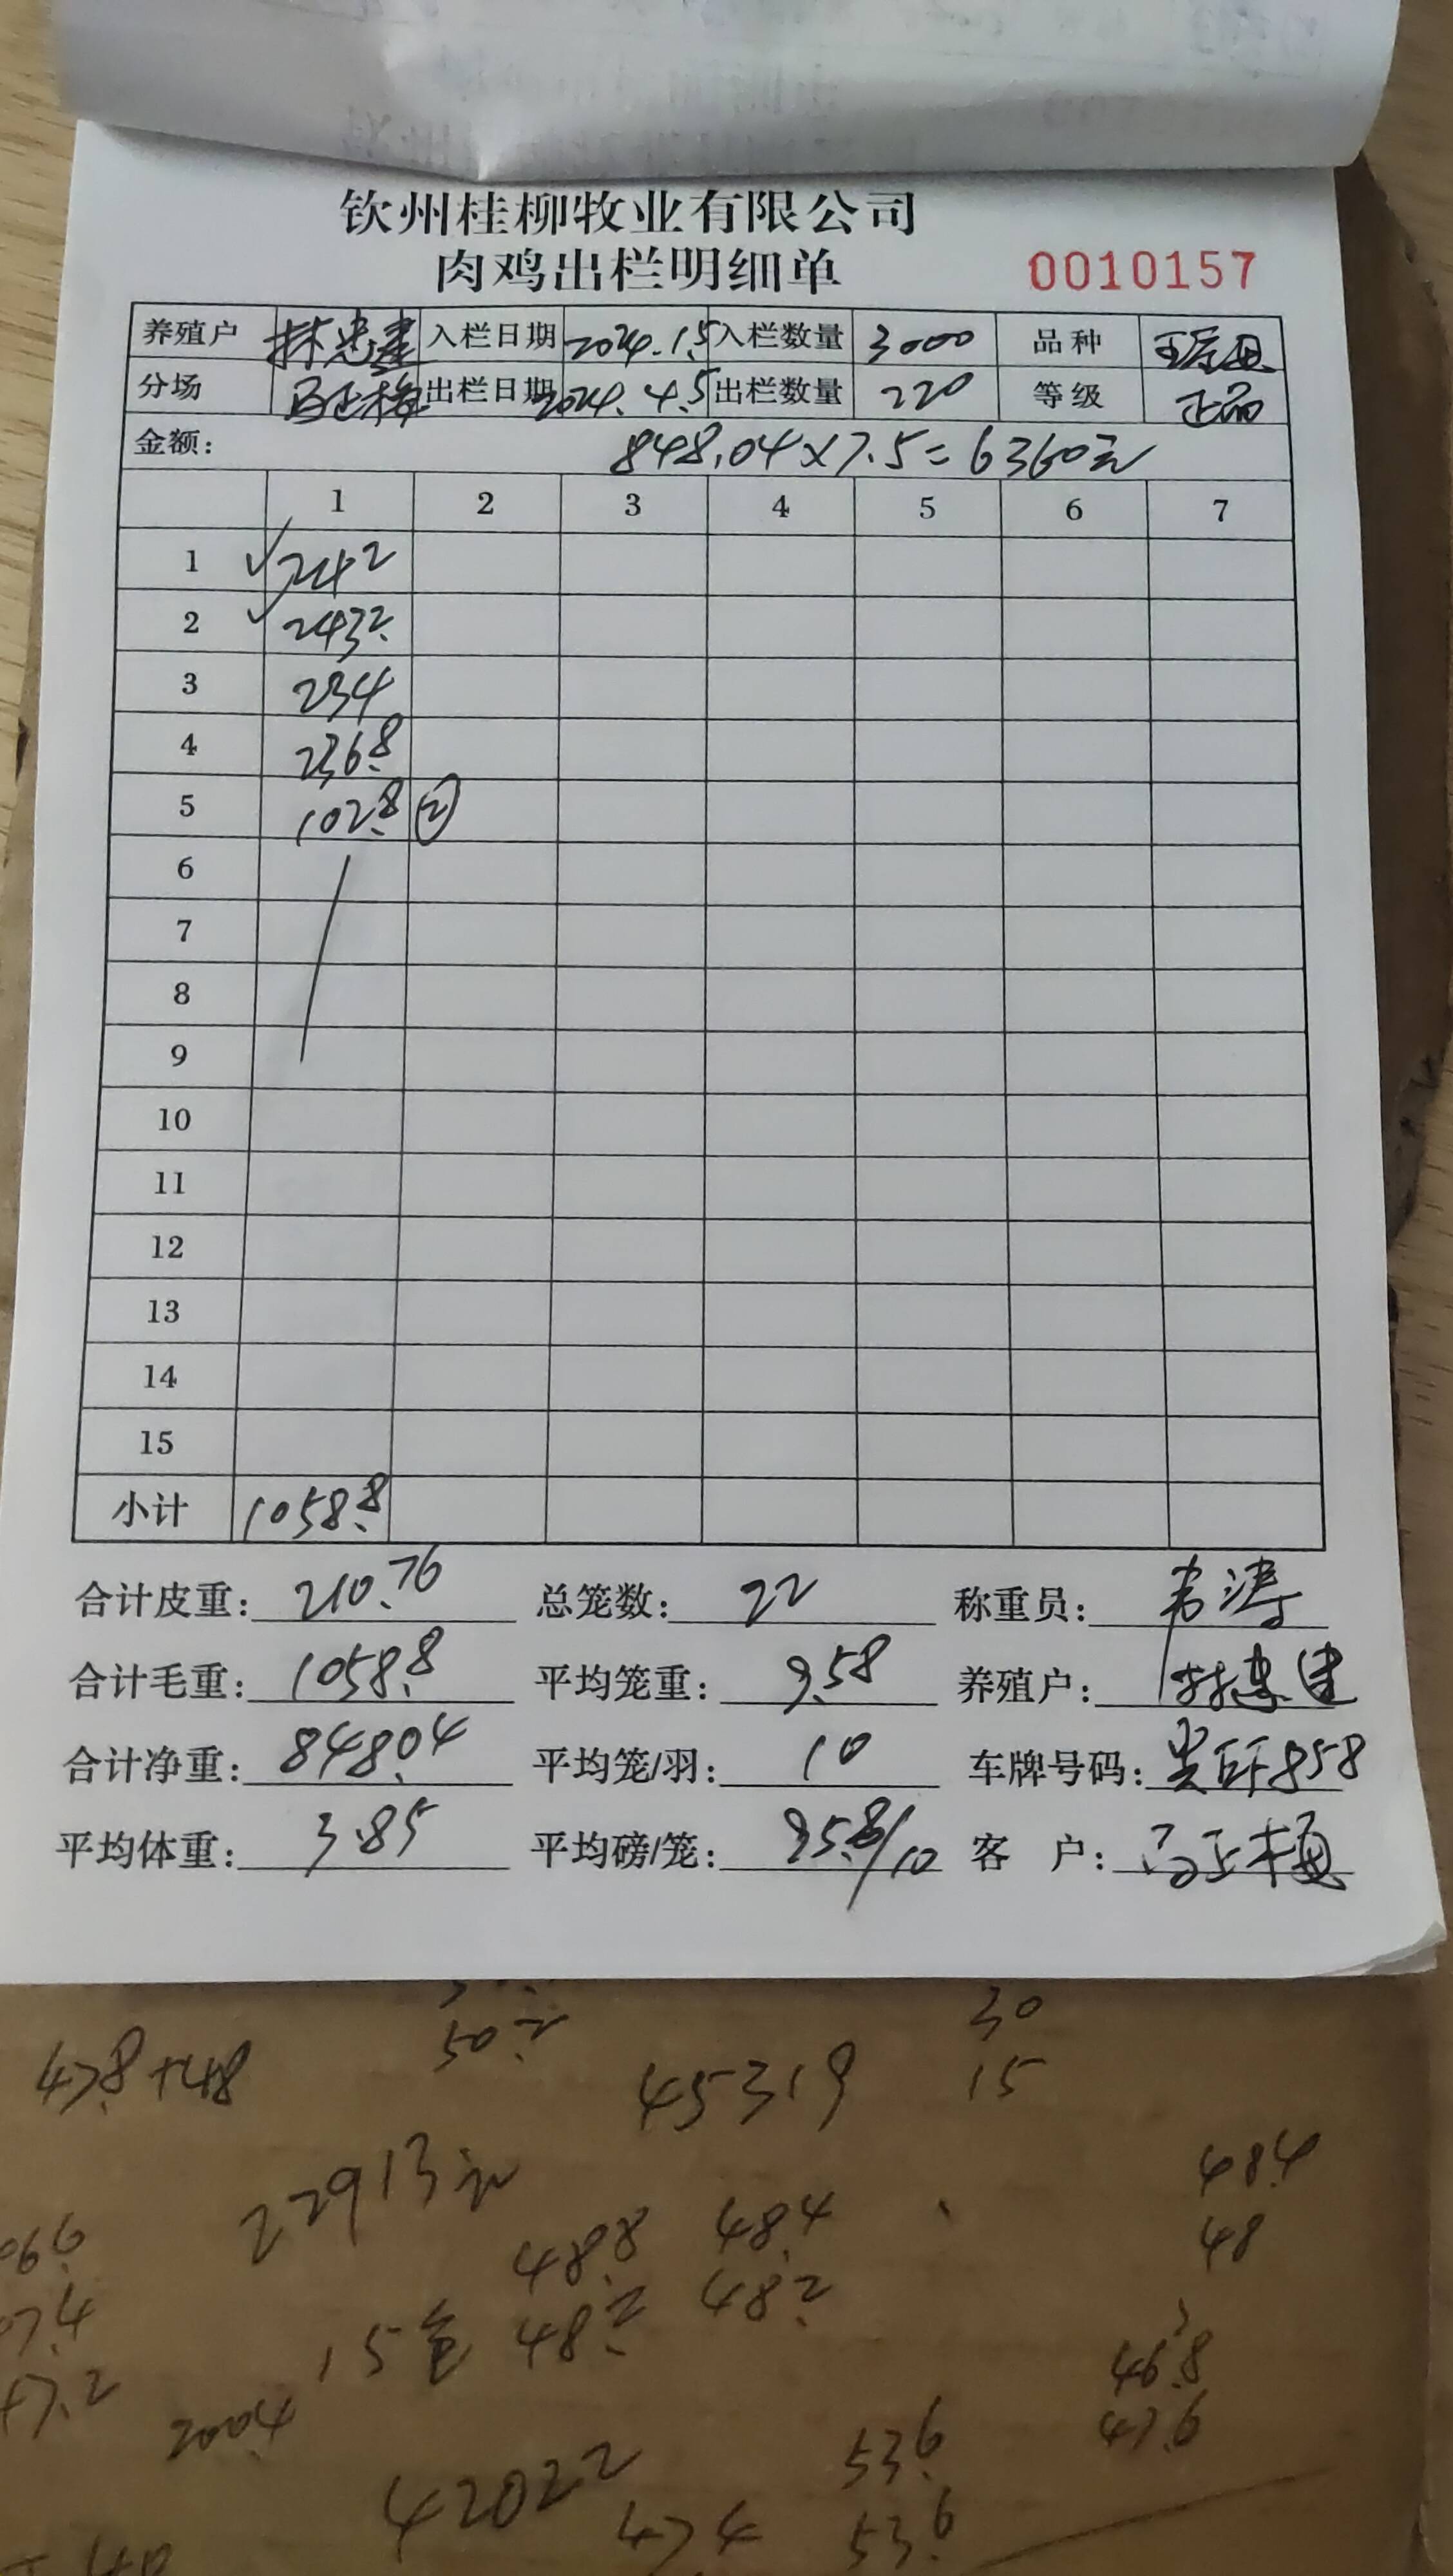 钦州桂柳牧业有限公司
肉鸡出栏明细单 0010157
养殖户 林忠建 入栏日期 2024.1.5 入栏数量 3000 品种
分场 马正梅 出栏日期 2024.4.5 出栏数量 220 等级 正品
金额: 848.04×7.5=6360元
1 2 3 4 5 6 7
1 242
2 243.2
3 234
4 236.8
5 102.8 ②
6
7
8
9
10
11
12
13
14
15
小计 1058.8
合计皮重: 210.76 总笼数: 22 称重员: 韦涛
合计毛重: 1058.8 平均笼重: 9.58 养殖户: 林忠建
合计净重: 848.04 平均笼/羽: 10 车牌号码:
平均体重: 3.85 平均磅/笼: 95.8/10 客 户: 马正梅
50.2 30
47.8+48 45319 15
22913元 48.4
48.8 48.4 48
15 48.2 48.2
46.8
47.2 2004 53.6 47.6
42022 47.4 53.6